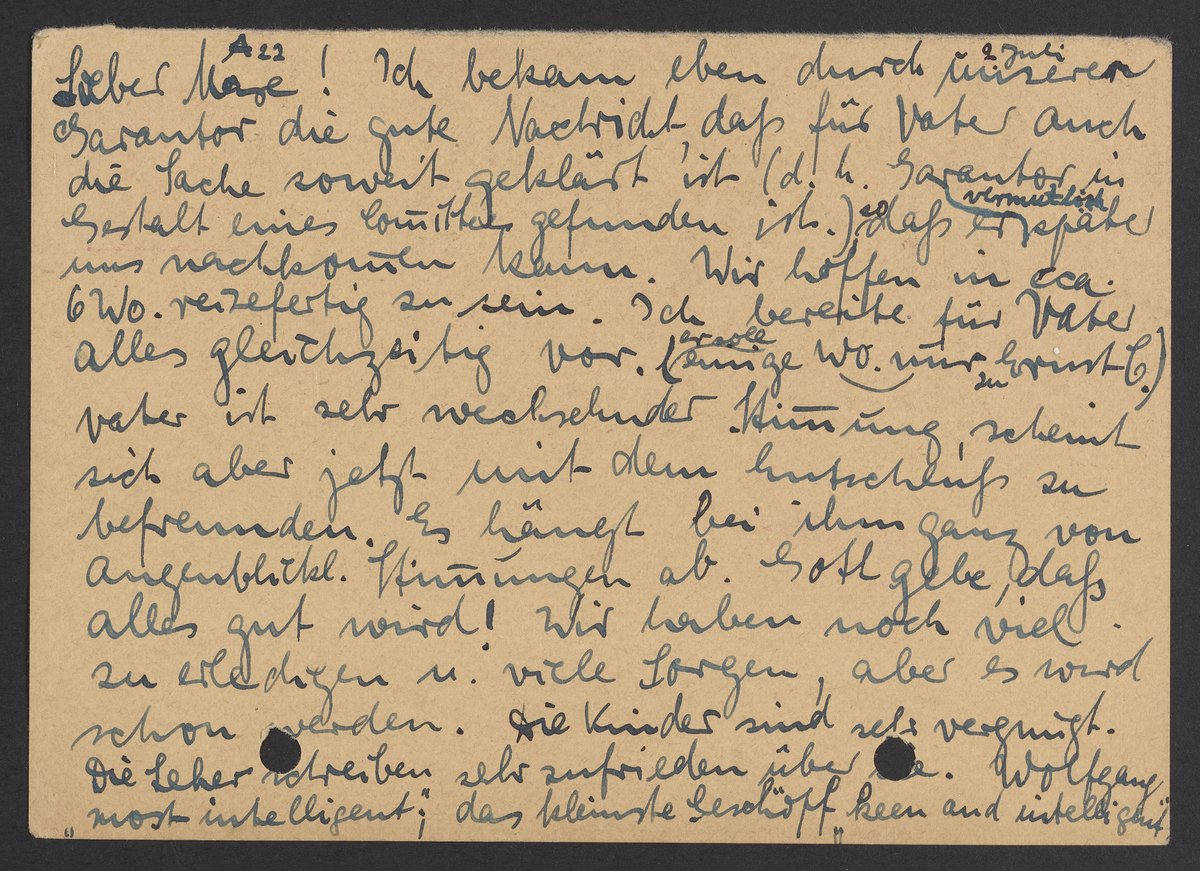 A22
2 Juli
Lieber Maxe! Ich bekam eben durch unseren
Garantor die gute Nachricht, daß für Vater auch
die Sache soweit geklärt ist (d. h. Garantor in
Gestalt eines Comittees gefunden ist.), so daß er vermutlich später
uns nachkommen kann. Wir hoffen in cca.
6 Wo. reisefertig zu sein. Ich bereite für Vater
alles gleichzeitig vor. (er soll einige Wo. nur zu Ernst C.)
Vater ist sehr wechselnder Stim̅ung, scheint
sich aber jetzt mit dem Entschluß zu
befreunden. Es hängt bei ihm ganz von
augenblickl. Stim̅ungen ab. Gott gebe, daß
alles gut wird! Wir haben noch viel
zu erledigen u. viele Sorgen, aber es wird
schon werden. Die Kinder sind sehr vergnügt.
Die Leher schreiben sehr zufrieden über. Wolfgang
„most intelligent"; das kleinste Geschöpf „keen and intelligent"